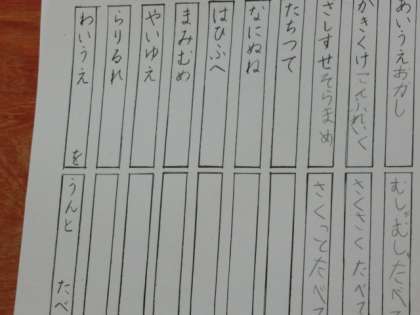 あいうえおかし
むしゃむしゃたべて
かきくけこんふれいく
さくさくたべて
さしすせそらまめ
さくってたべて
たちつて
なにぬね
はひふへ
まみむめ
やいゆえ
らりるれ
わいうえ を
うんと たべ